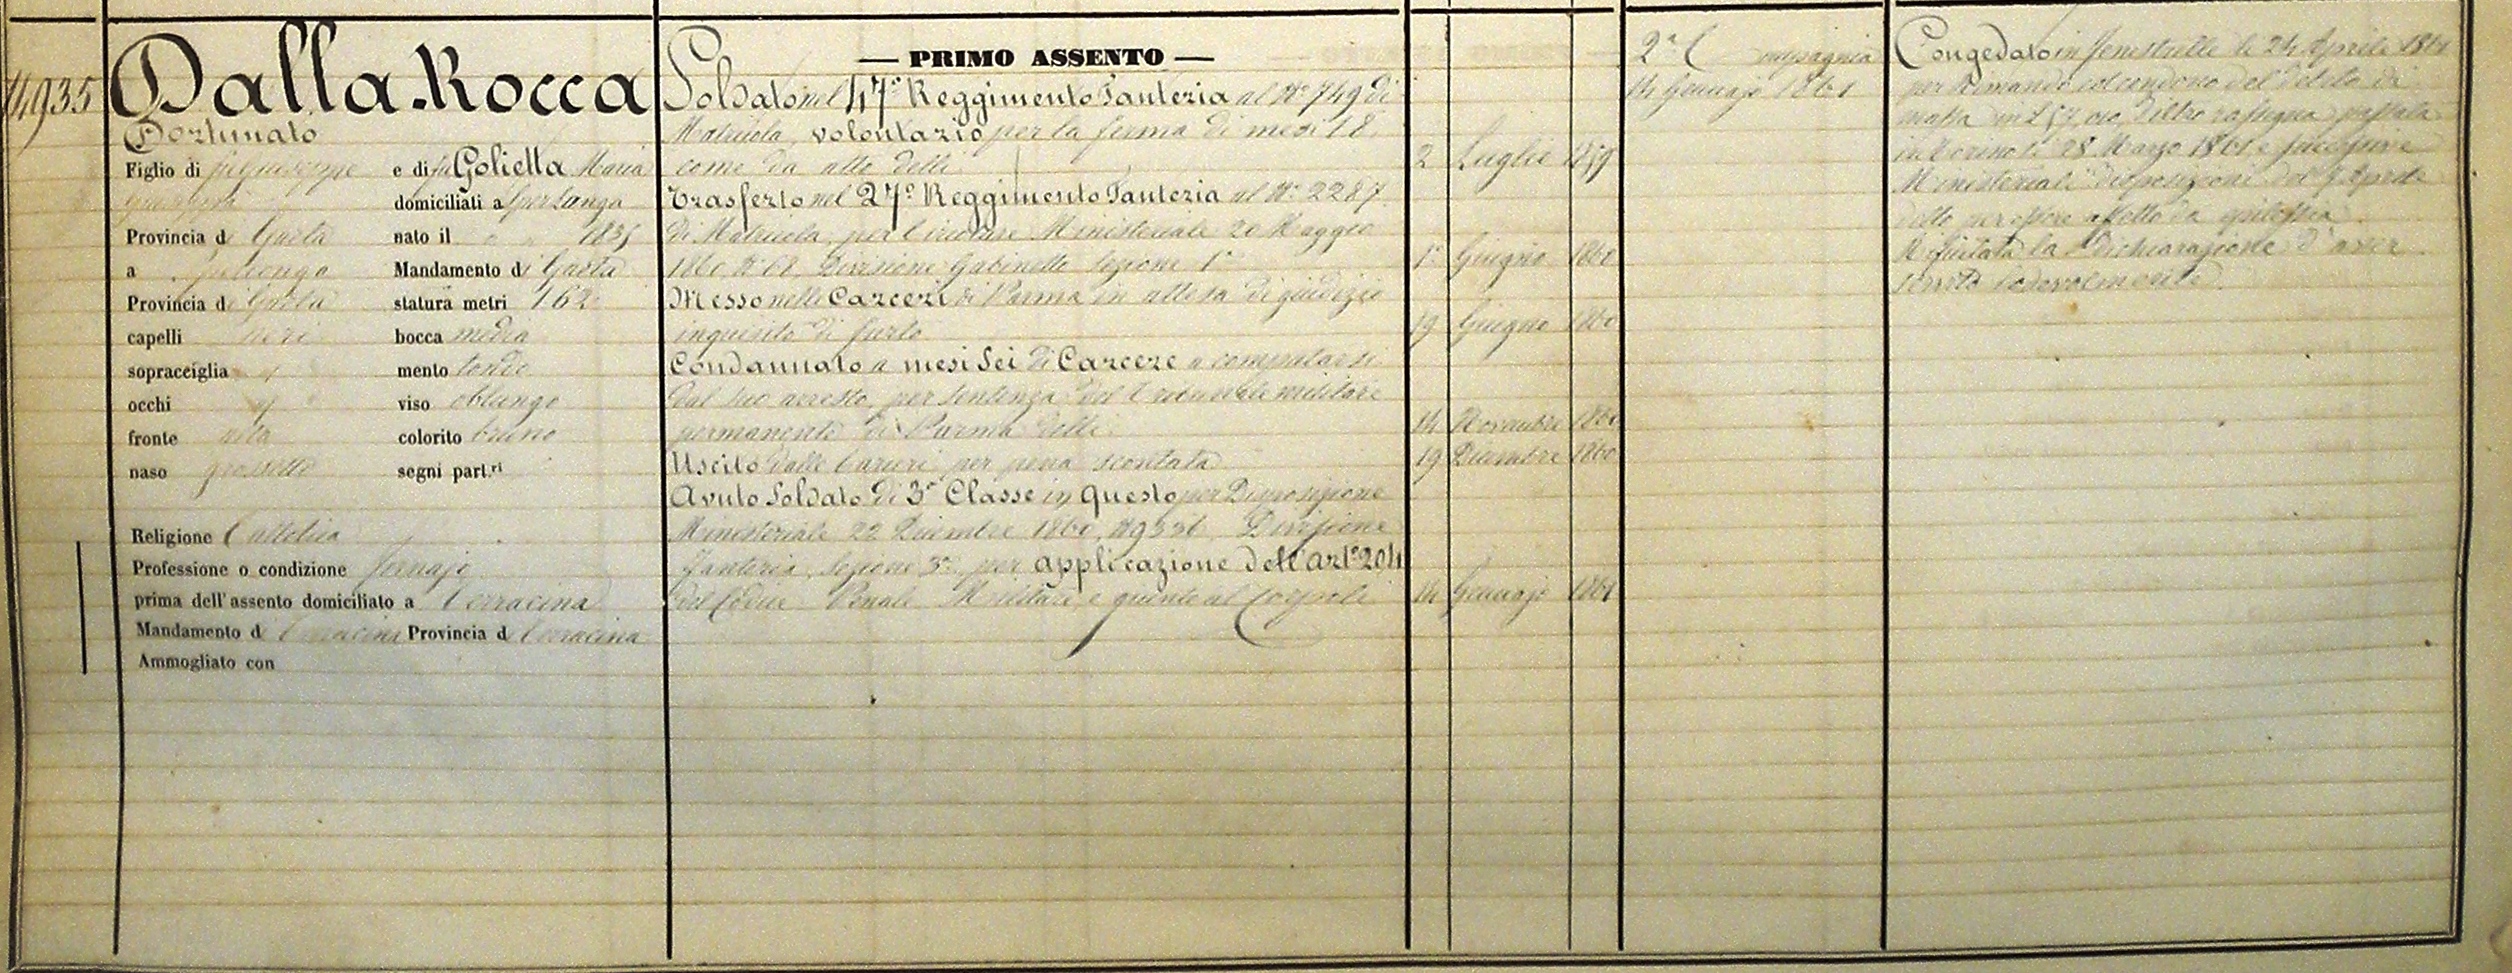 14935
Dalla-Rocca
Fortunato
Figlio di fu Giuseppe e di fu Golietta Maria
Giuseppa domiciliati a Sperlunga
Provincia di Gaeta nato il 1835
a Sperlonga Mandamento di Gaeta
Provincia di Gaeta statura metri 1 62
capelli neri bocca media
sopracciglia mento tondo
occhi viso oblungo
fronte alta colorito bruno
naso grossetto segni part.ri
Religione Cattolica
Professione o condizione fornajo
prima dell'assento domiciliato a Terracina
Mandamento di Terracina Provincia di Terracina
Ammogliato con
— PRIMO ASSENTO —
Soldato nel 47º Reggimento Fanteria al Nº 749 di
Matricola, volontario per la ferma di mesi 18
come da atto delli 2 Luglio 1859
Trasferto nel 27º Reggimento Fanteria al Nº 2287
di Matricola, per Circolare Ministeriale 20 Maggio
1860 Nº 68 Divisione Gabinetto Sezione 1ª 1º Giugno 1860
Messo nelle Carceri di Parma in attesa di giudizio
inquisito di furto 19 Giugno 1860
Condannato a mesi sei di Carcere a computarsi
dal suo arresto, per sentenza del Tribunale militare
permanente di Parma delli 14 Novembre 1860
Uscito dalle Carceri per pena scontata 19 Dicembre 1860
Avuto Soldato di 3ª Classe in questo per Disposizione
Ministeriale 22 Dicembre 1860, Divisione
Fanteria, Sezione 3ª per applicazione dell'artº 204
del Codice Penale Militare, e giunto al Corpo li 14 Gennajo 1861
2ª Compagnia
14 Gennajo 1861
Congedato in Fenestrelle li 24 Aprile 1861
per Rimando col condono del debito di
massa in dietro rassegna passata
in Torino li 28 Marzo 1861 e successive
Ministeriali disposizioni del 7 Aprile
detto per essere affetto da epilessia.
Rifiutata la Dichiarazione d'aver
servito lodevolmente.